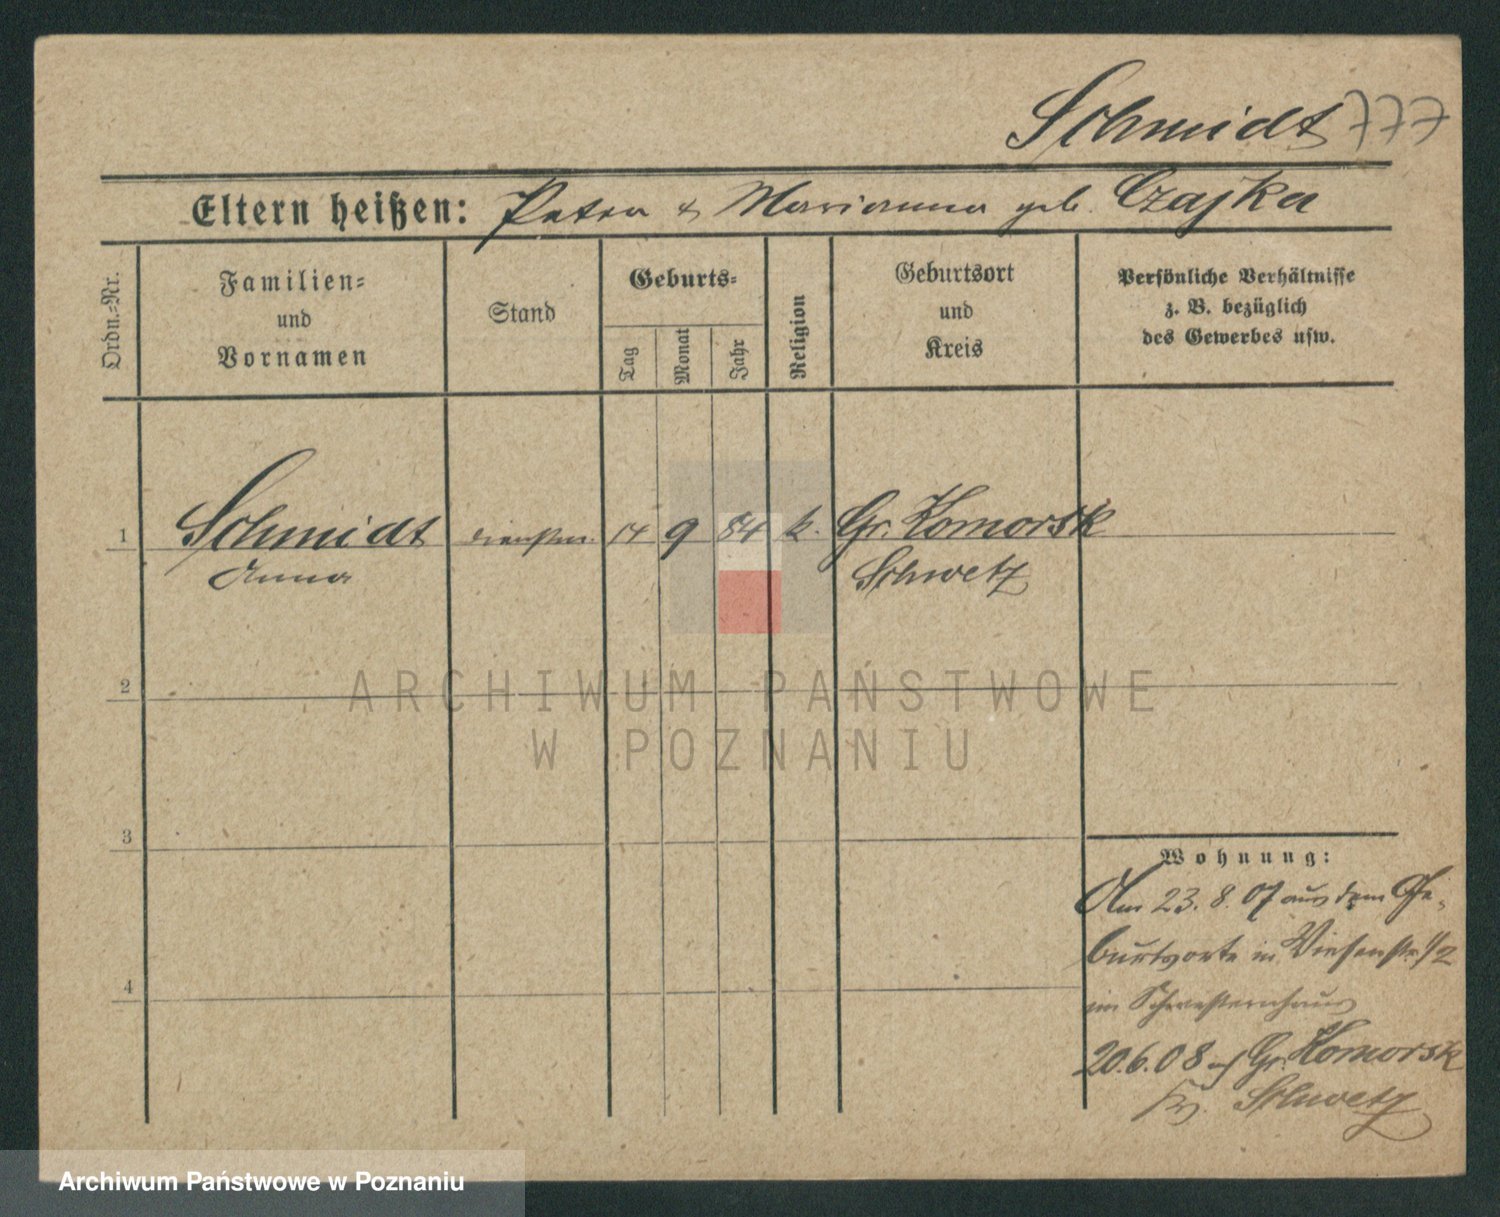 Schmidt 777
Eltern heißen: Peter & Marianna geb. Czajka
Ordn.-Nr.
Familien-
und
Vornamen
Stand
Geburts-
Tag
Monat
Jahr
Religion
Geburtsort
und
Kreis
Persönliche Verhältnisse
z. B. bezüglich
des Gewerbes usw.
1 Schmidt 14 9 84 k. Gr. Komorsk
Anna Schwetz
2
3
4
Wohnung:
Am 23.8.07 aus dem Ge-
burtsorte in
im Schwesternhaus
20.6.08 Gr. Komorsk
Schwetz
ARCHIWUM PAŃSTWOWE
W POZNANIU
Archiwum Państwowe w Poznaniu